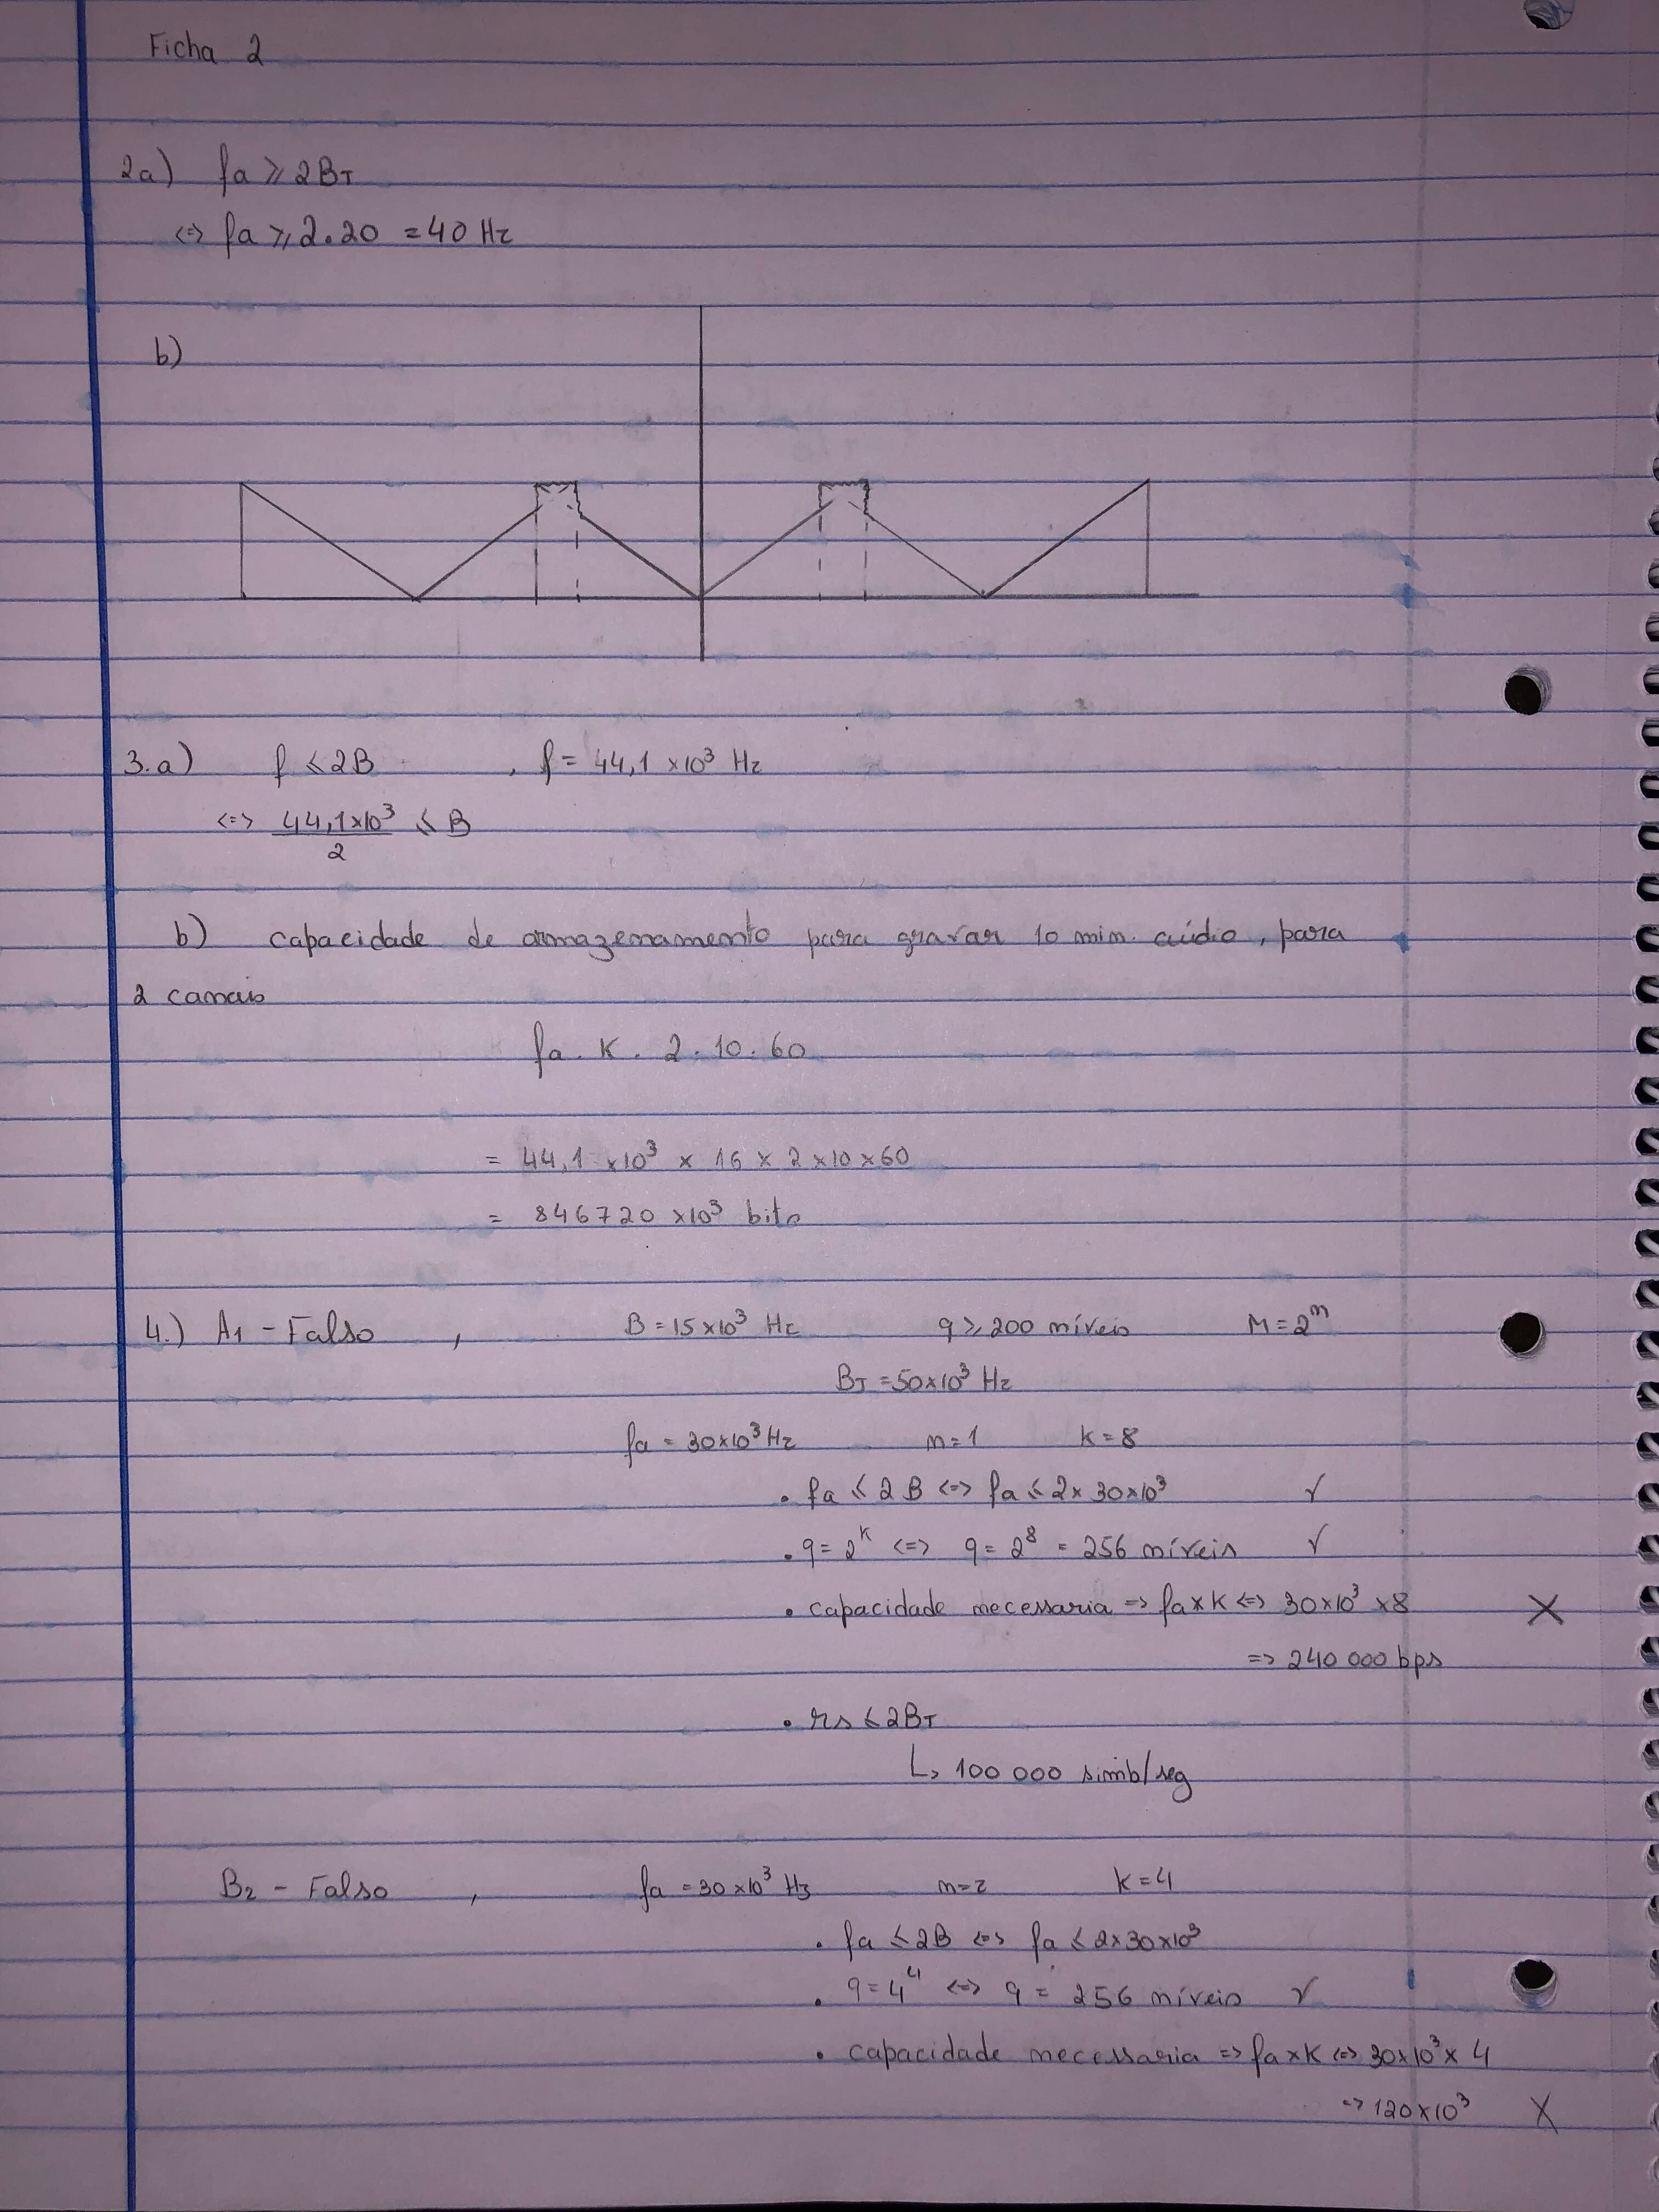 Ficha 2
2a) fa ≥ 2BT
<=> fa ≥ 2.20 = 40 Hz
b)
3.a) f ≤ 2B , f = 44,1 ×10³ Hz
<=> 44,1×10³/2 ≤ B
b) capacidade de armazenamento para gravar 10 min. aúdio, para
2 canais
fa . K . 2 . 10 . 60
= 44,1 ×10³ × 16 × 2 ×10 ×60
= 846720 ×10³ bits
4.) A1 - Falso , B = 15×10³ Hz q ≥ 200 níveis M = 2ⁿ
BT = 50×10³ Hz
fa = 30×10³ Hz n=1 k=8
• fa ≤ 2B <=> fa ≤ 2× 30×10³ ✓
• q = 2ᴷ <=> q = 2⁸ = 256 níveis ✓
• capacidade necessaria => fa×K <=> 30×10³ ×8 X
=> 240 000 bps
• rs ≤ 2BT
↳ 100 000 simb/seg
B2 - Falso , fa = 30×10³ Hz n=2 k=4
• fa ≤ 2B <=> fa ≤ 2×30×10³
• q = 4⁴ <=> q = 256 níveis ✓
• capacidade necessaria => fa×K <=> 30×10³× 4
=> 120×10³ X